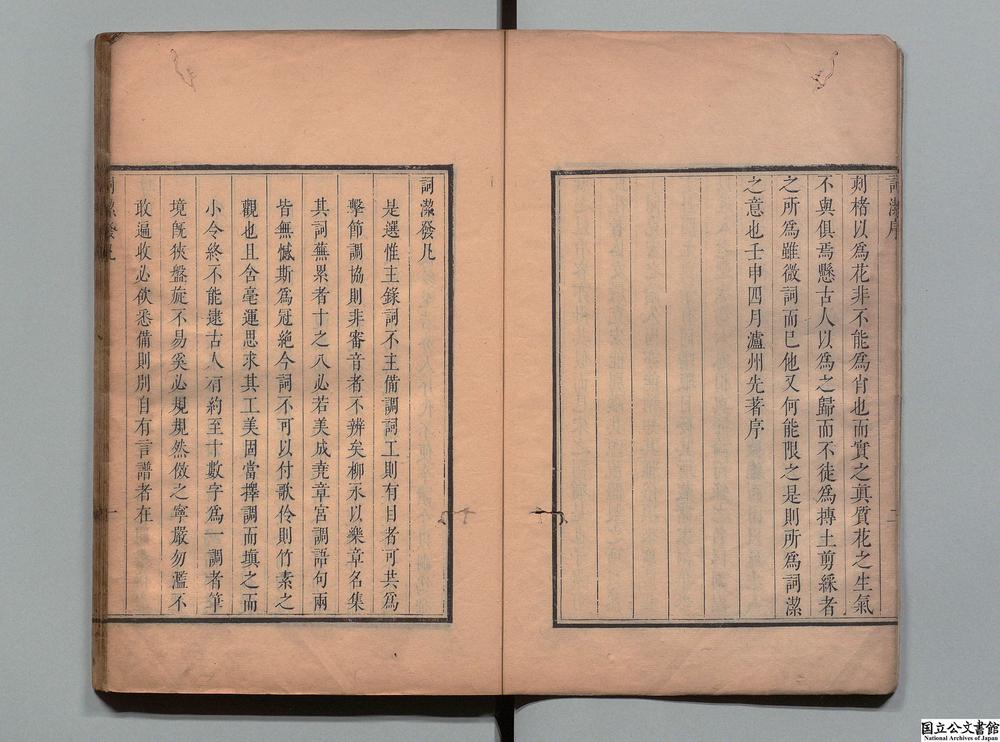 詞潔序
刻楮以為花非不能為肖也而實之真質花之生氣
不與俱焉懸古人以為之歸而不徒為摶土剪綵者
之所為雖微詞而已他又何能限之是則所為詞潔
之意也壬申四月瀘州先著序
二
詞潔發凡
是選惟主錄詞不主備調詞工則有目者可共為
擊節調協則非審音者不辨矣柳永以樂章名集
其詞蕪累者十之八必若美成堯章宮調語句兩
皆無憾斯為冠絕今詞不可以付歌伶則竹素之
觀也且含毫運思求其工美固當擇調而填之而
小令終不能逮古人有約至十數字為一調者筆
境旣狹盤旋不易奚必規規然倣之寧嚴勿濫不
敢遍收必欲悉備則別自有言譜者在
詞潔發凡
一
国立公文書館
National Archives of Japan